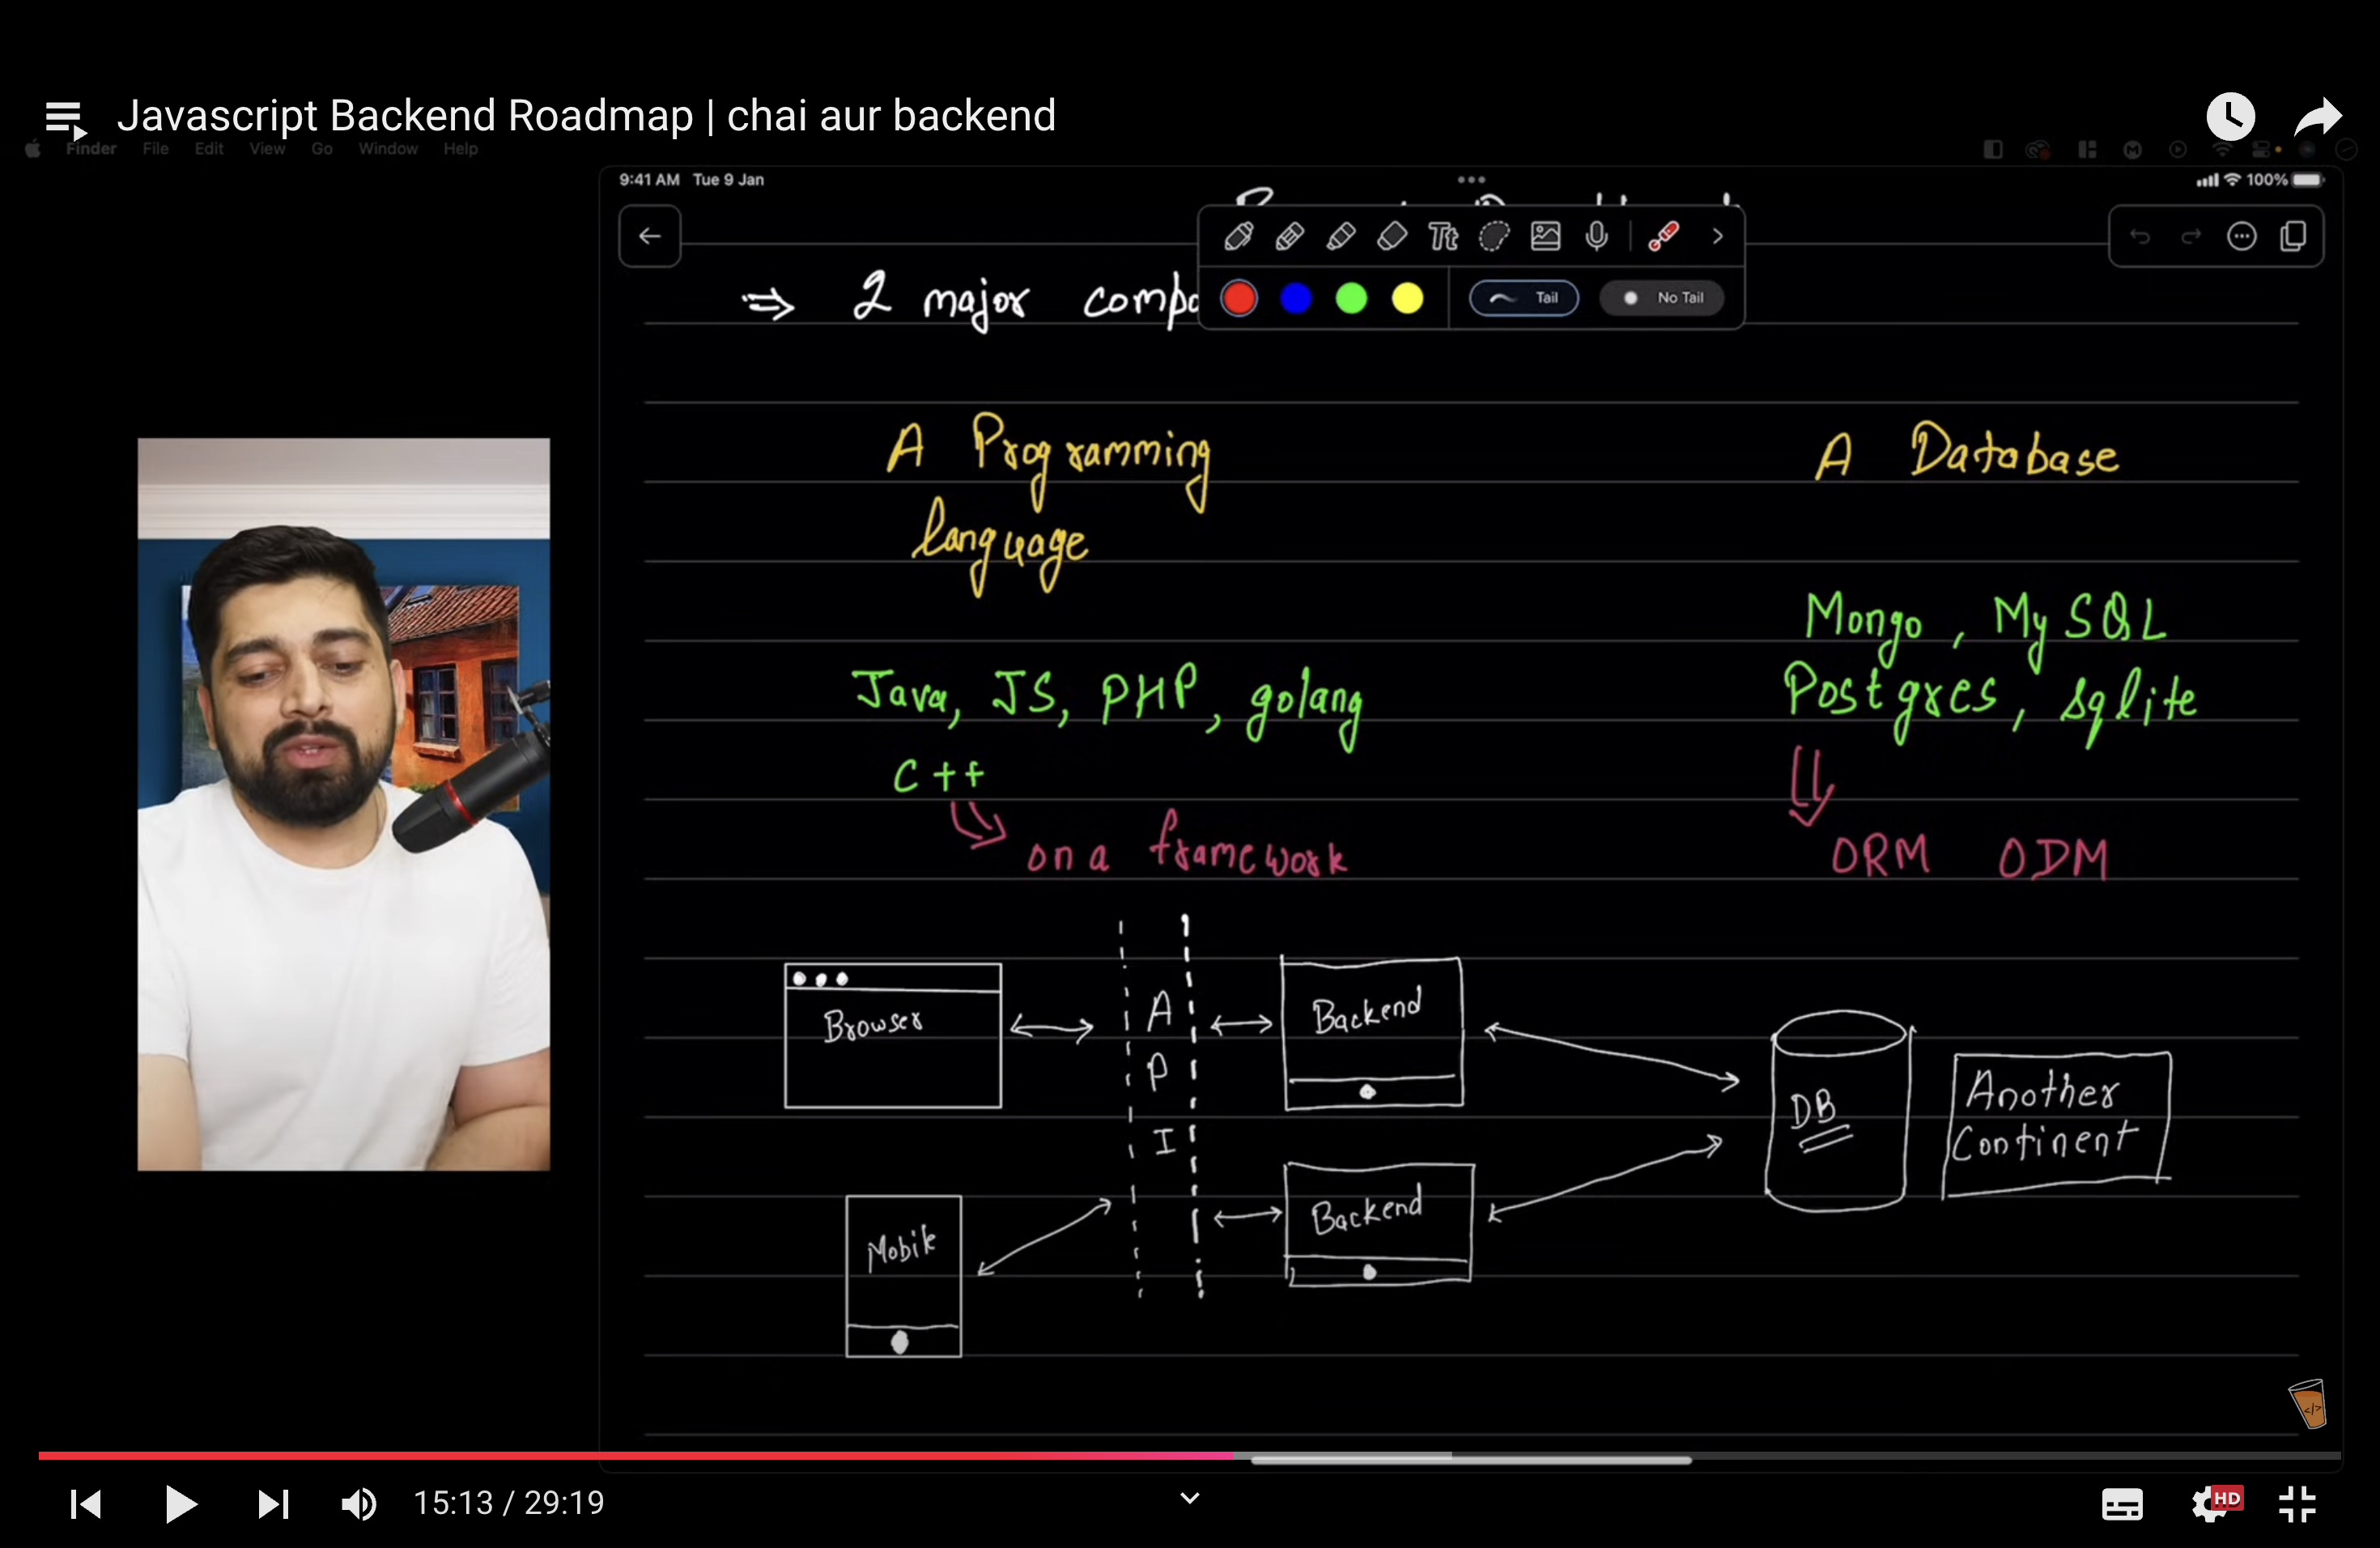 Javascript Backend Roadmap | chai aur backend
Finder File Edit View Go Window Help
9:41 AM Tue 9 Jan
100%
Tt
⇒ 2 major compo
Tail
No Tail
A Programming
language
A Database
Java, JS, PHP, golang
C++
on a framework
Mongo, MySQL
Postgres, sqlite
ORM ODM
Browser
API
Backend
DB
Another
Continent
Mobile
Backend
</>
15:13 / 29:19
HD